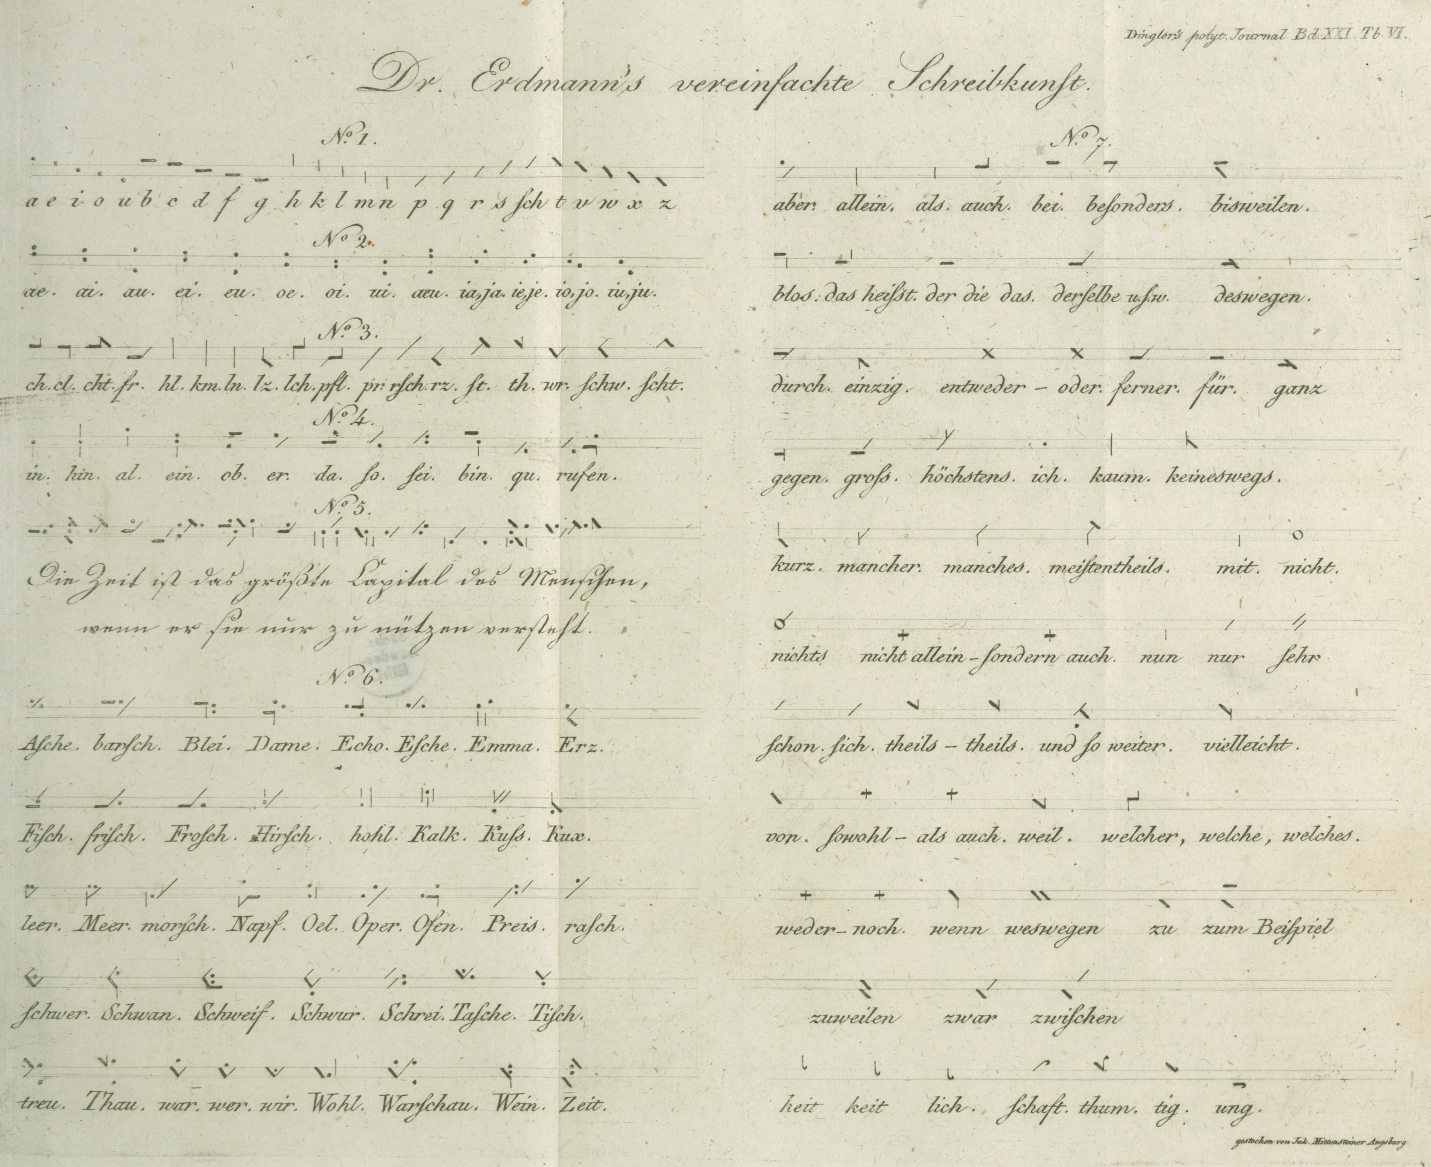 Dingler's polyt. Journal Bd. XXI. Tb. VI.
Dr. Erdmann's vereinfachte Schreibkunſt.
No. 1.
a e i o u b c d f g h k l m n p q r s ſch t v w x z
No. 2.
ae. ai. au. ei. eu. oe. oi. ui. aeu. ia,ja. ie,je. io,jo. iu,ju.
No. 3.
ch. cl. cht. fr. hl. km. ln. lz. lch. pfl. pr. rſch. rz. ſt. th. wr. ſchw. ſcht.
No. 4.
in. hin. al. ein. ob. er. da. ſo. ſei. bin. qu. rufen.
No. 5.
Die Zeit iſt das größte Capital des Menſchen,
wenn er ſie nur zu nützen verſteht.
No. 6.
Aſche. barſch. Blei. Dame. Echo. Eſche. Emma. Erz.
Fiſch. friſch. Froſch. Hirſch. hohl. Kalk. Kuſs. Kux.
leer. Meer. morſch. Napf. Oel. Oper. Ofen. Preis. raſch.
ſchwer. Schwan. Schweif. Schwur. Schrei. Taſche. Tiſch.
treu. Thau. war. wer. wir. Wohl. Warſchau. Wein. Zeit.
No. 7.
aber. allein. als. auch. bei. beſonders. bisweilen.
blos. das heiſst. der die das. derſelbe u.ſ.w. deswegen.
durch. einzig. entweder – oder. ferner. für. ganz
gegen. groſs. höchstens. ich. kaum. keineswegs.
kurz. mancher. manches. meiſtentheils. mit. nicht.
nichts nicht allein – ſondern auch. nun nur ſehr
ſchon. ſich. theils – theils. und ſo weiter. vielleicht.
von. ſowohl – als auch. weil. welcher, welche, welches.
weder – noch. wenn weswegen zu zum Beiſpiel
zuweilen zwar zwiſchen
heit keit lich. ſchaft. thum. tig. ung.
geſtochen von Jak. Mittensteiner Augsburg